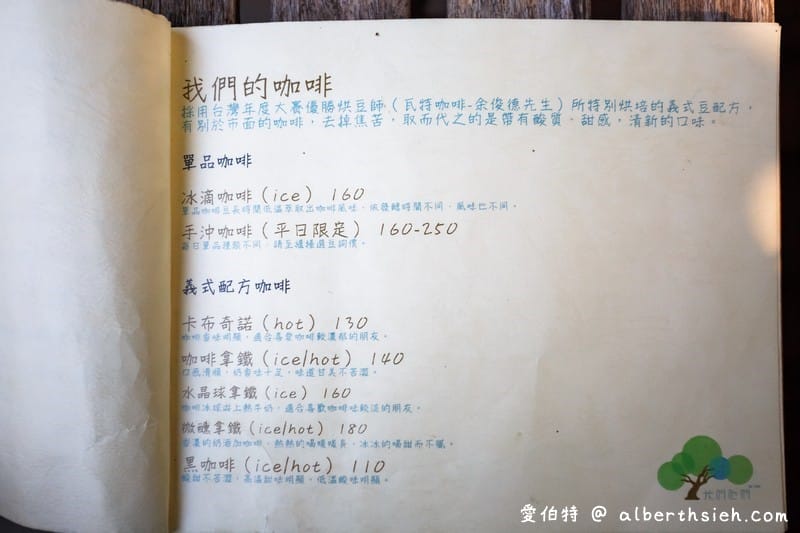 我們的咖啡
採用台灣年度大賽優勝烘豆師（瓦特咖啡-余俊德先生）所特別烘培的義式豆配方，
有別於市面的咖啡，去掉焦苦，取而代之的是帶有酸質、甜感，清新的口味。
單品咖啡
冰滴咖啡（ice） 160
單品咖啡豆長時間低溫萃取出咖啡風味，依發酵時間不同，風味也不同。
手沖咖啡（平日限定） 160-250
每日單品種類不同，請至櫃檯選豆詢價。
義式配方咖啡
卡布奇諾（hot） 130
咖啡香味明顯，適合喜愛咖啡較濃郁的朋友。
咖啡拿鐵（ice/hot） 140
口感滑順，奶香味十足，味道甘美不苦澀。
水晶球拿鐵（ice） 160
咖啡冰球淋上熱牛奶，適合喜歡咖啡味較淡的朋友。
微醺拿鐵（ice/hot） 180
香濃的奶酒加咖啡，熱熱的喝暖暖身，冰冰的喝甜而不膩。
黑咖啡（ice/hot） 110
酸甜不苦澀，高溫甜味明顯，低溫酸味明顯。
我們他們
愛伯特 @ alberthsieh.com